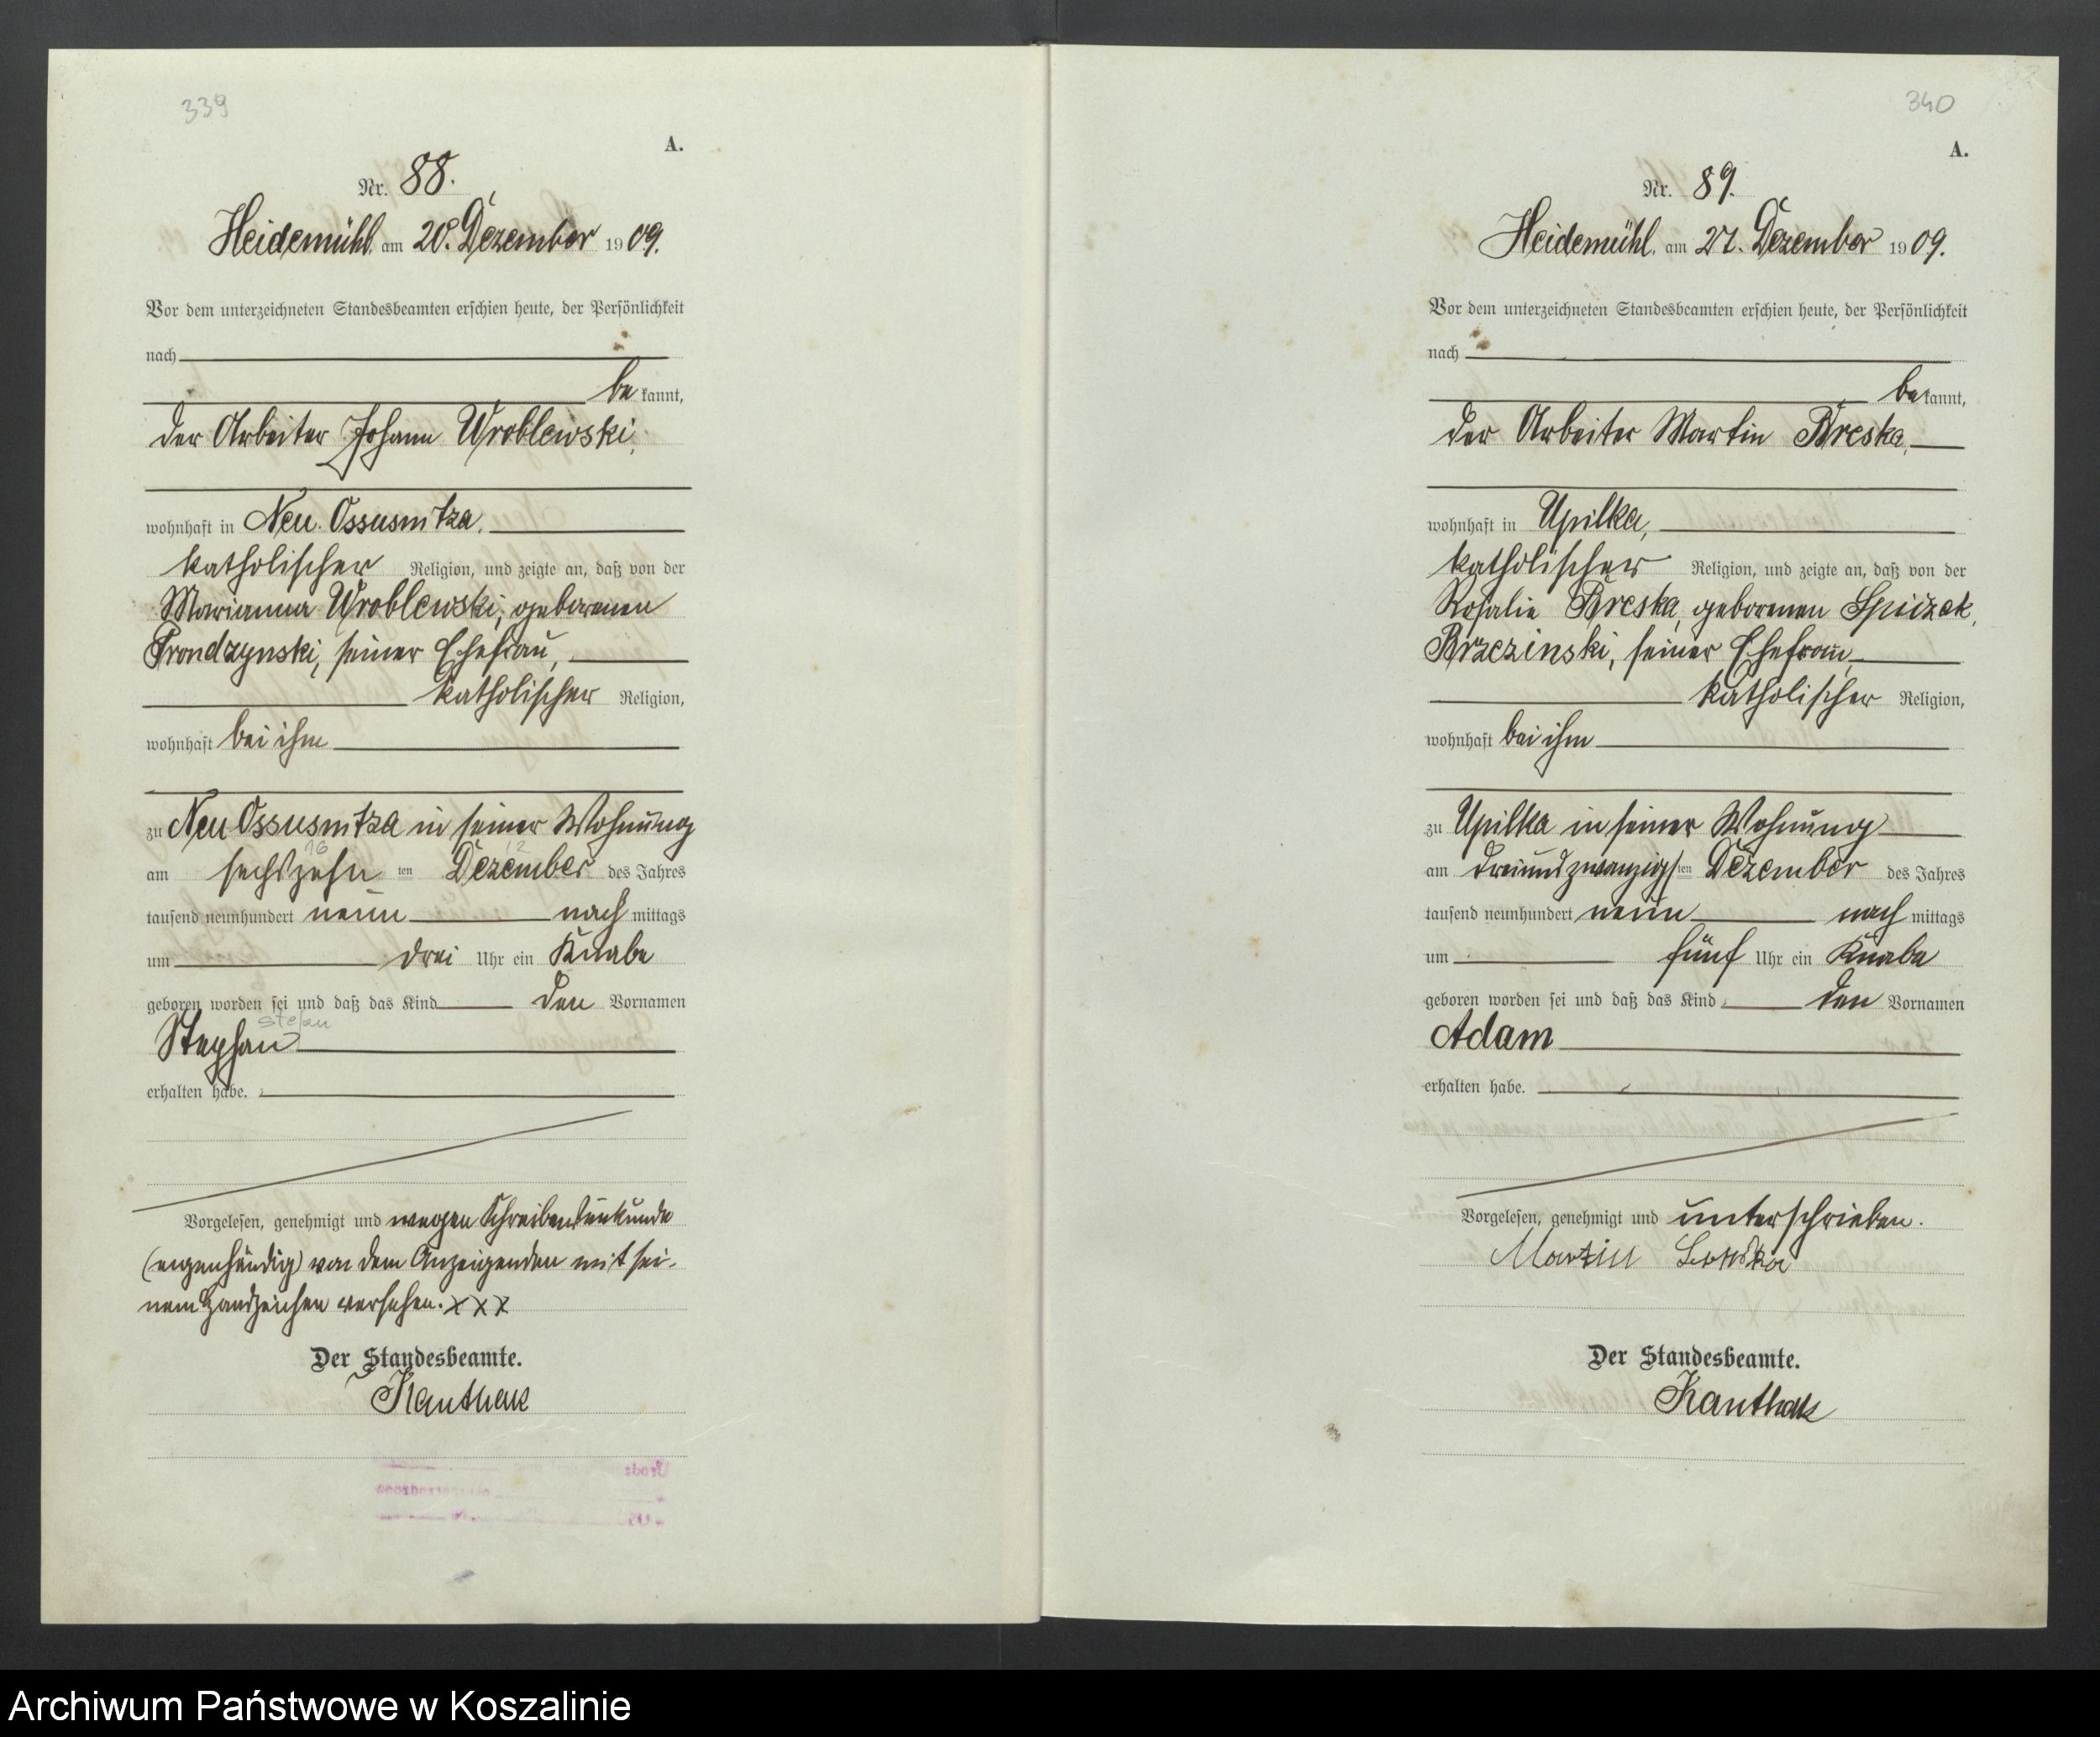 339
A.
Nr. 88.
Heidemühl, am 20. Dezember 1909.
Vor dem unterzeichneten Standesbeamten erschien heute, der Persönlichkeit
nach
bekannt,
der Arbeiter Johann Wroblewski,
wohnhaft in Neu Ossusnitza,
katholischer Religion, und zeigte an, daß von der
Marianna Wroblewski, geborenen
Prondzynski, seiner Ehefrau,
katholischer Religion,
wohnhaft bei ihm
zu Neu Ossusnitza in seiner Wohnung
16 12
am sechszehn ten Dezember des Jahres
tausend neunhundert neun nach mittags
um drei Uhr ein Knabe
geboren worden sei und daß das Kind den Vornamen
Stefan
Stephan
erhalten habe.
Vorgelesen, genehmigt und wegen Schreibensunkunde
(eigenhändig) von dem Anzeigenden mit sei-
nem Handzeichen versehen. XXX
Der Standesbeamte.
Kanthak
340
A.
Nr. 89.
Heidemühl, am 27. Dezember 1909.
Vor dem unterzeichneten Standesbeamten erschien heute, der Persönlichkeit
nach
bekannt,
der Arbeiter Martin Breska,
wohnhaft in Upilka,
katholischer Religion, und zeigte an, daß von der
Rosalie Breska, geborenen Spiczak
Brzezinski, seiner Ehefrau,
katholischer Religion,
wohnhaft bei ihm
zu Upilka in seiner Wohnung
am dreiundzwanzigsten Dezember des Jahres
tausend neunhundert neun nach mittags
um fünf Uhr ein Knabe
geboren worden sei und daß das Kind den Vornamen
Adam
erhalten habe.
Vorgelesen, genehmigt und unterschrieben.
Martin
Der Standesbeamte.
Kanthak
Archiwum Państwowe w Koszalinie